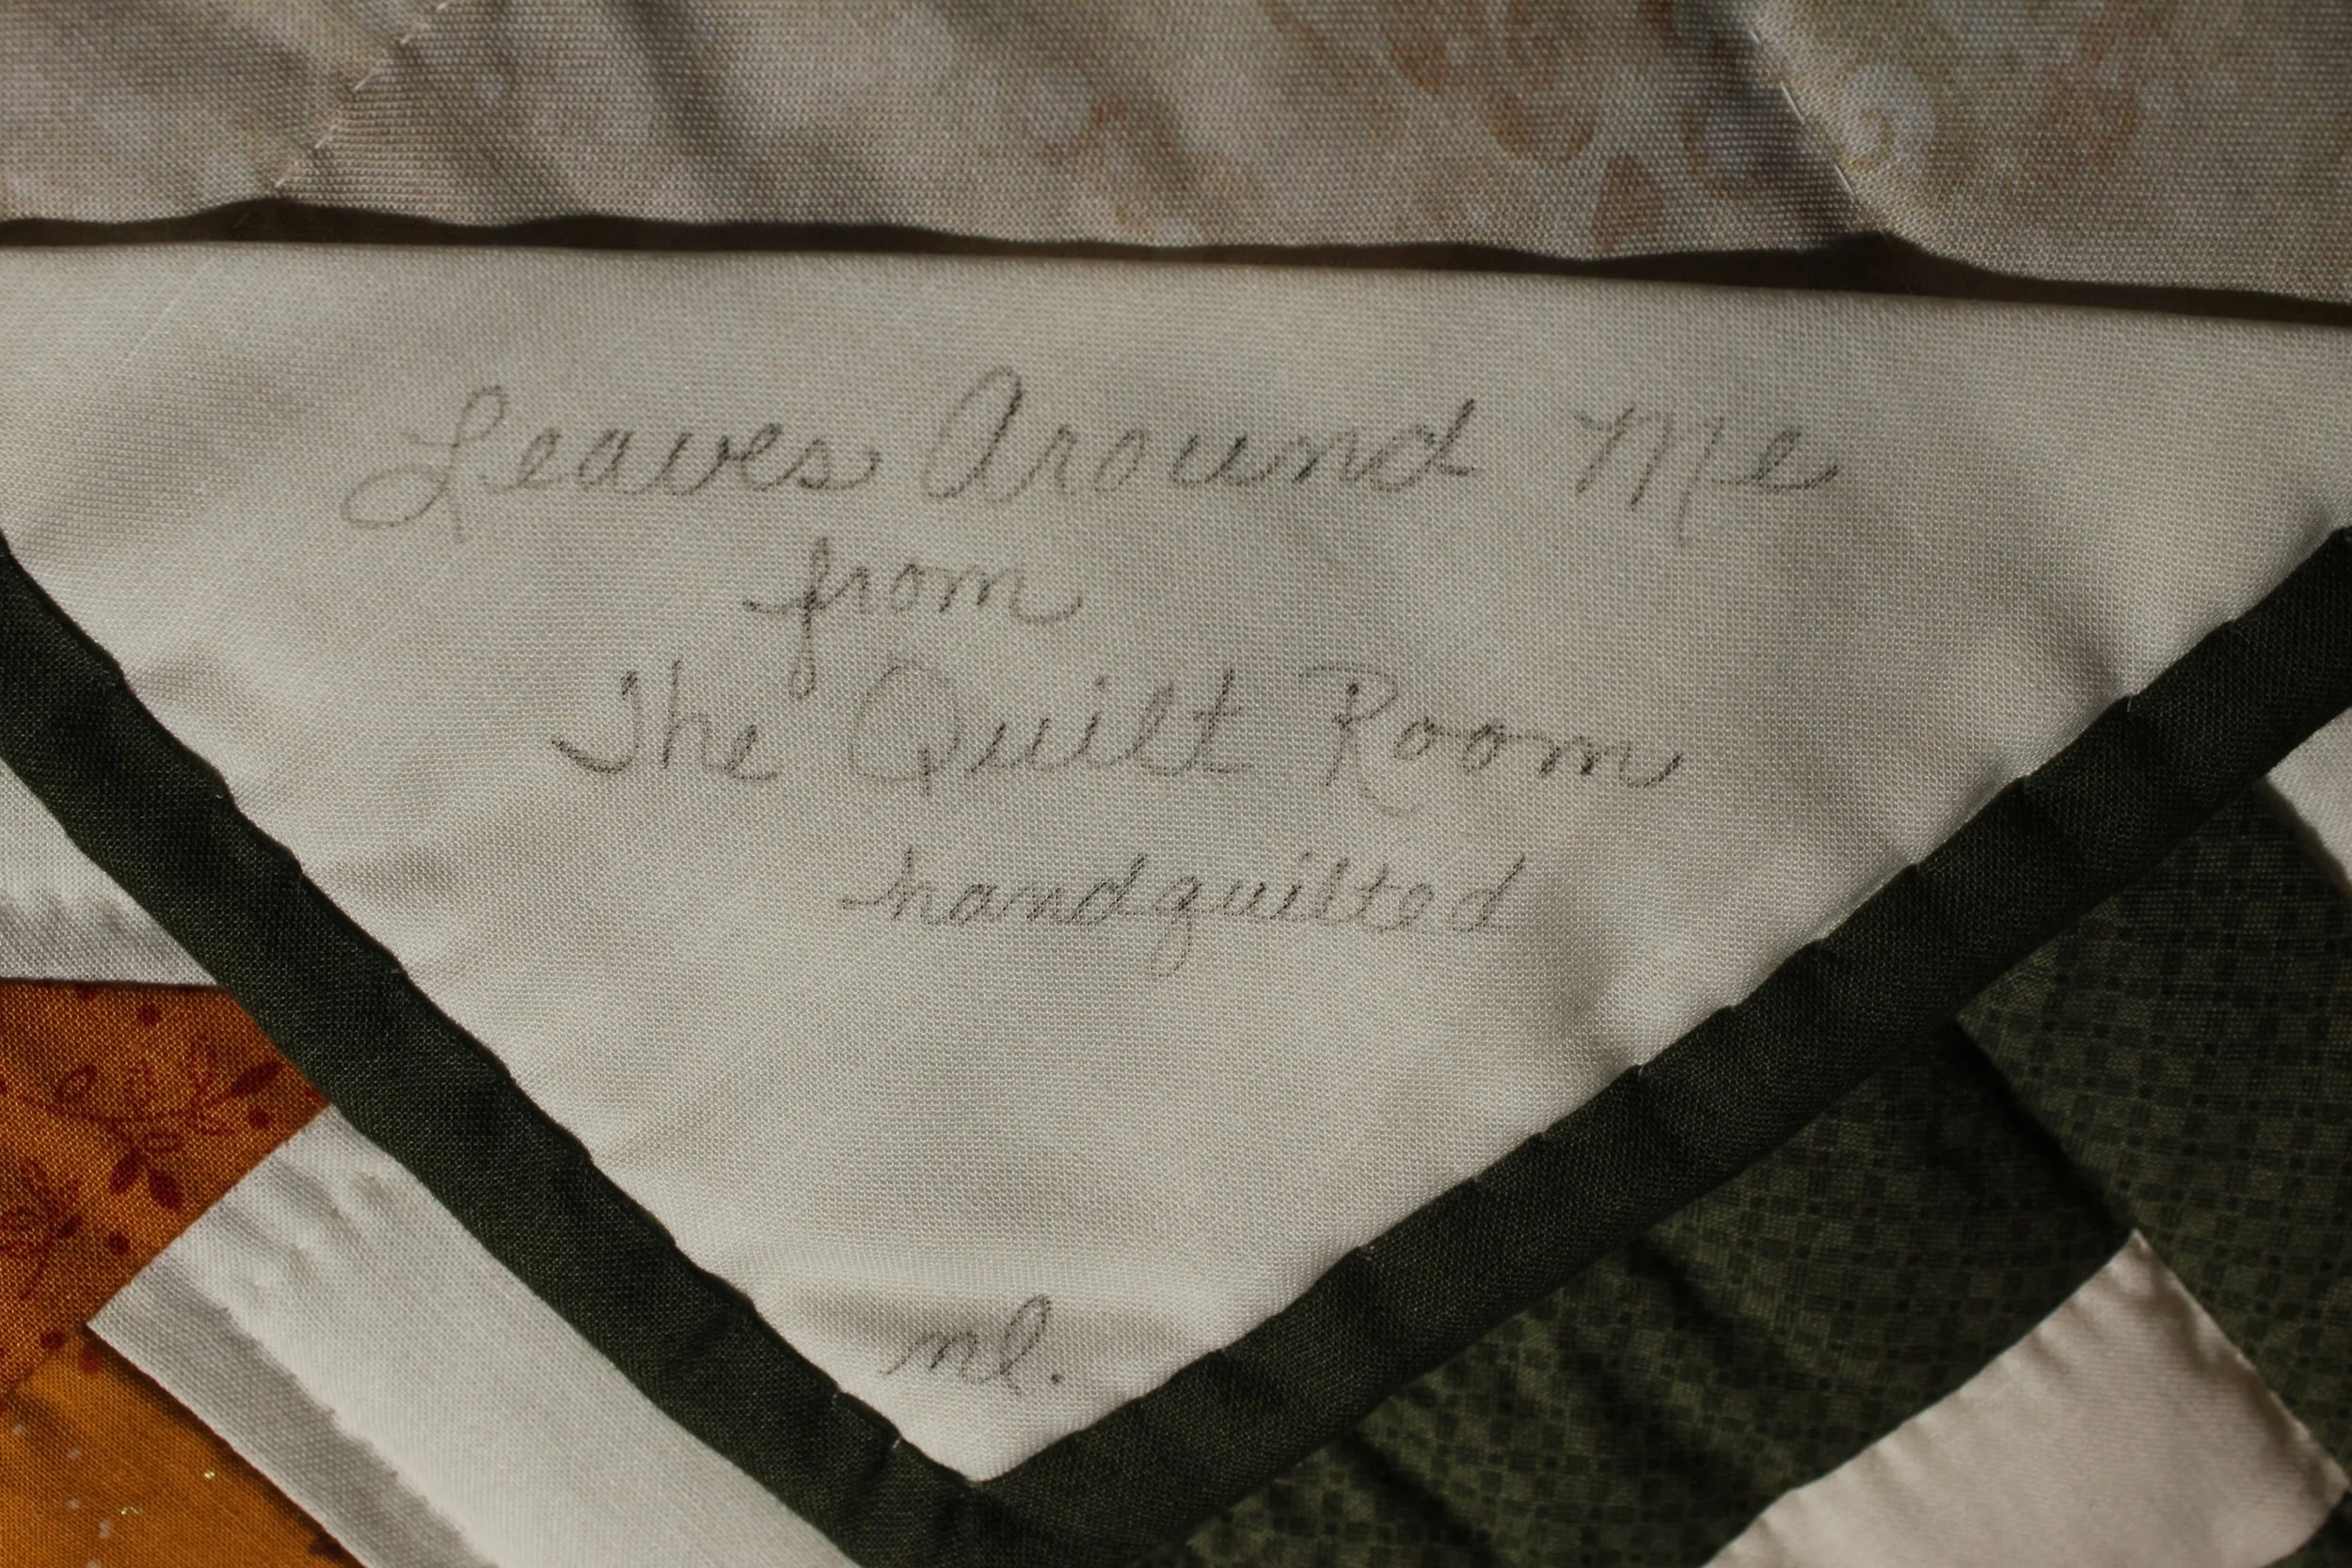 Leaves Around Me
from
The Quilt Room
handquilted
nl.